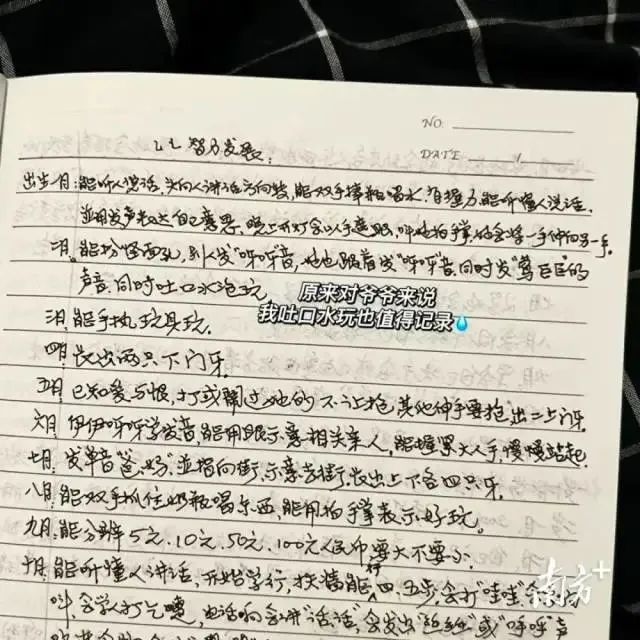 NO.
DATE
智力发展:
出生一月:能听人说话,头向人讲话方向转,能双手捧瓶喝水,有握力,能听懂人说话,
并用发声表达自己意思,晚上开灯会以手遮眼,叫她拍掌,她会将一手伸向另一手。
二月。能扮“怪面孔”,别人发“呀呀”音,她也跟着发“呀呀”音,同时发“ 巨巨”的
声音,同时吐口水泡玩。
原来对爷爷来说
我吐口水玩也值得记录💧
三月,能手执玩具玩。
四月,长出两只下门牙。
五月,已知爱与恨,打或闹过她的不让抱,其他伸手要抱,出二上门牙。
六月,伊伊呀呀学发音,能用眼示意相关亲人,能握紧大人手,慢慢站起。
七月,发单音“爸、妈”,并指向街,示意去街,长出上下各四只牙。
八月,能双手抓住奶瓶喝东西,能用拍手掌表示好玩。
九月,能分辨5元、10元、50元、100元人民币,要大不要小。
十月,能听懂人讲话,开始学行,扶墙能行四、五步,会打“哇哇”会
叫,会学人打乞嗤,电话响会讲“话话”,会发出“ ”或“呼呼”音
南方+